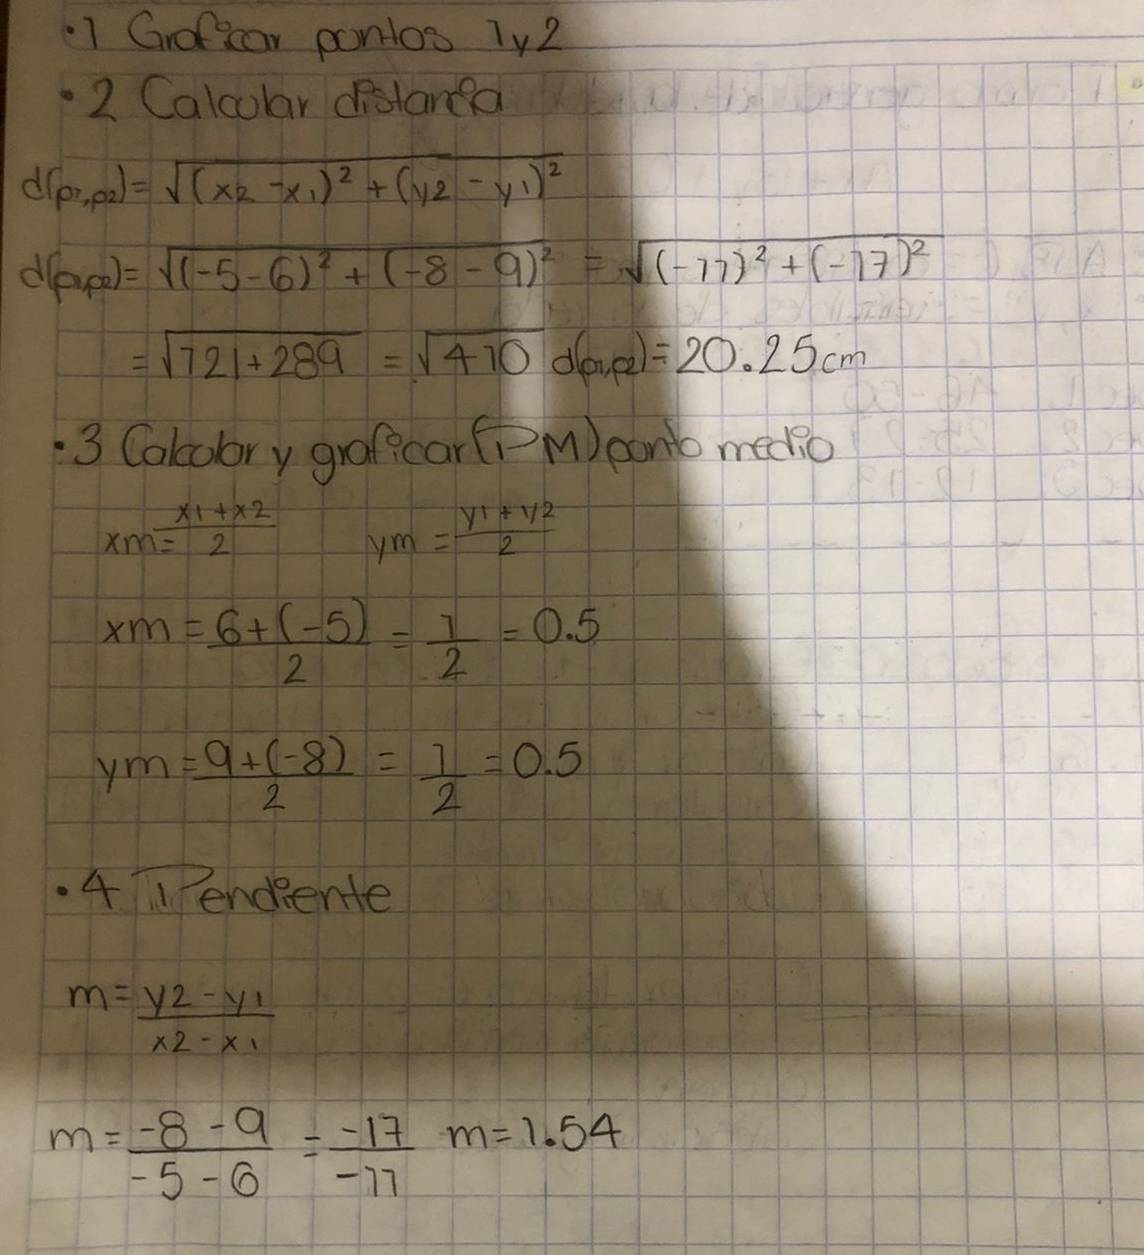 •1 Graficar pontos 1y2
•2 Calcular distancia
d(p1,p2)= √(x2 -x1)² +(y2 -y1)²
d(p1,p2)= √(-5-6)² + (-8-9)² = √(-11)² +(-17)²
= √121+289 = √410 d(p1,p2)= 20.25cm
•3 Calcular y graficar (PM) ponto medio
xm= x1+x2/2 ym = y1+y2/2
xm = 6+(-5)/2 = 1/2 = 0.5
ym = 9+(-8)/2 = 1/2 = 0.5
•4 Pendiente
m= y2-y1/x2-x1
m= -8-9/-5-6 = -17/-11 m=1.54